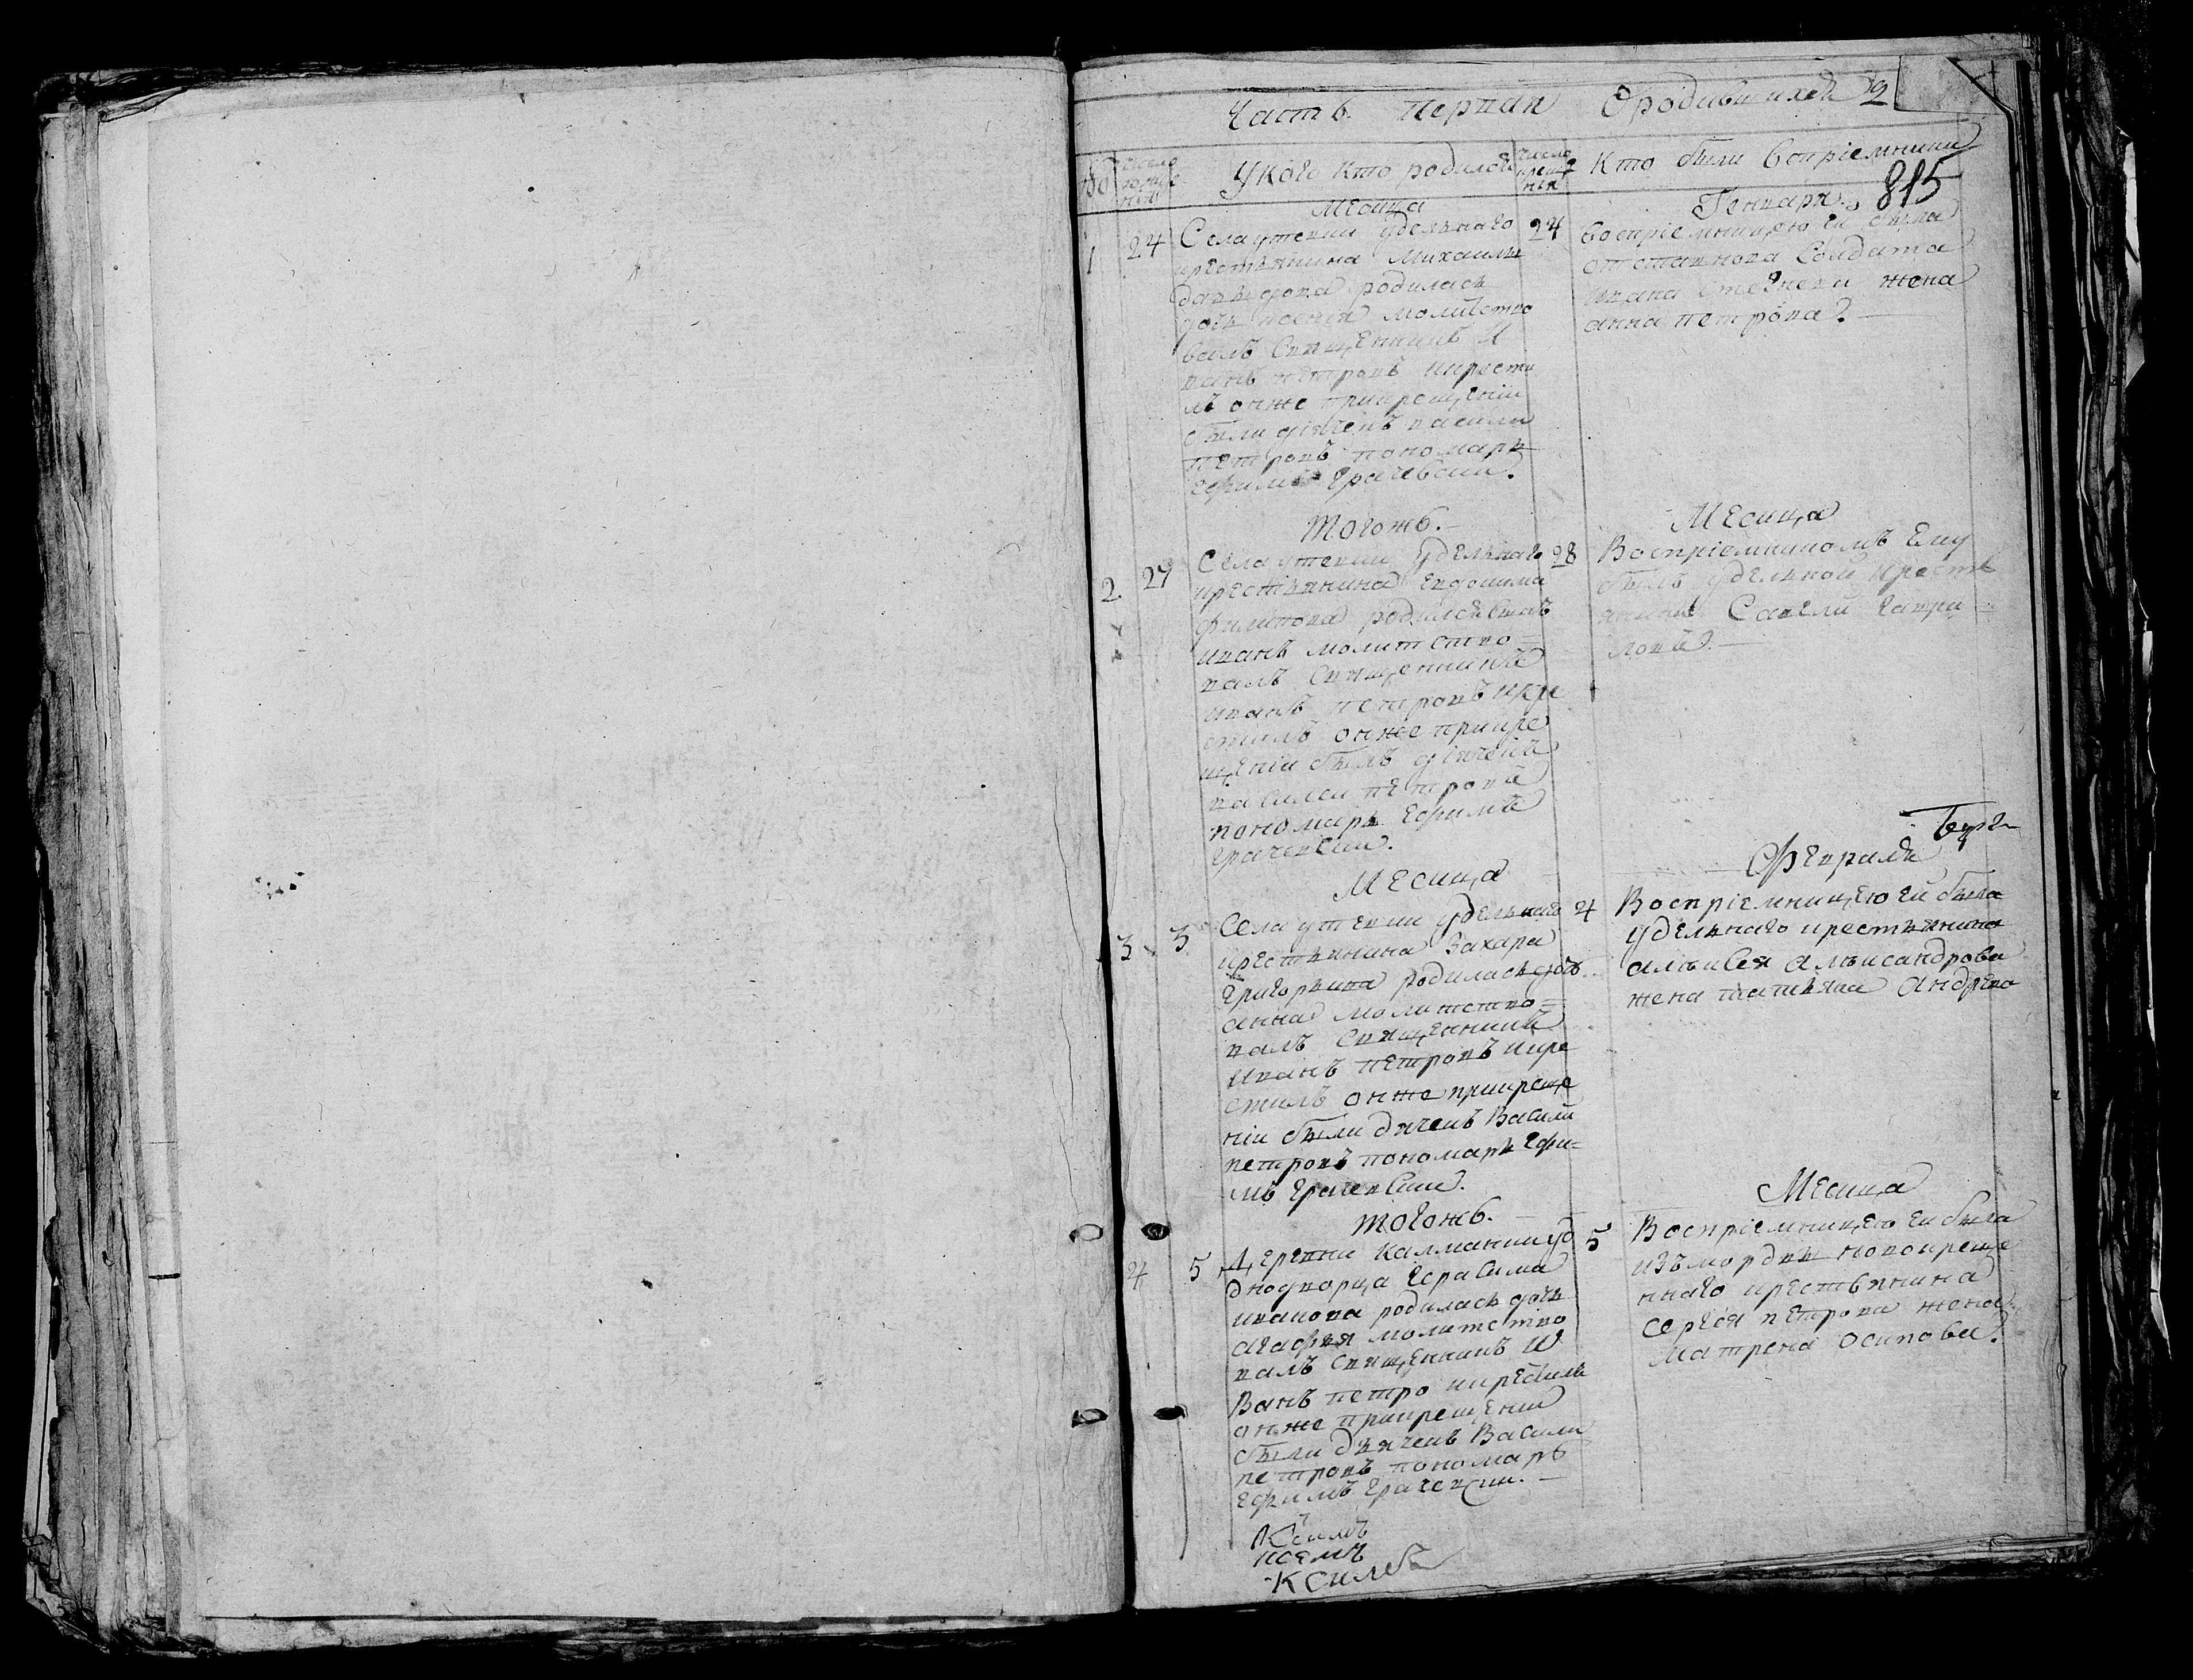 Часть первая О родившихся 2
№ число рожде ния У кого кто родился число креще ния Кто были воспріемники
815
Месяца Генваря
1 24 Села утевки удельнаго 24
крестьянина Михаилы
давыдова родилась
дочь ксенія молитство
валъ священникъ И
ванъ петровъ икрести
лъ онже прикрещеніи
были дьячекъ василй
петровъ пономарь
ефимъ грачевски.
воспріемницею ей была
отставнова Солдата
ивана жена
анна петрова.
Тогожъ. Месяца
2 27 Села утевки удельнаго 28
крестьянина евдокима
филипова родился сынъ
иванъ молитство=
валъ священникъ
иванъ петровъ икре
стилъ онже прикре
щеніи былъ дьячекъ
василеи петровъ
пономарь ефимъ
грачевски.
Воспріемникомъ Ему
былъ удельной кресть
янинъ Савели гаври=
ловъ.
Месяца Февраля
3 3 Села утевки удельнаго 4
крестьянина Захара
григорьева родилась дочь
анна молитство=
валъ священникъ
иванъ петровъ икре
стилъ онже прикреще
ніи были дячекъ Васили
петровъ пономарь Ефи=
мъ грачевски.
Воспріемницею ей была
удельнаго крестьянина
алексея александрова
жена татьяна андрева
тогожъ. Месяца
4 5 Деревни Калманки од 5
днодворца герасима
иванова родилась дочь
агафья молитство
валъ священникъ И
Ванъ петро икрестилъ
онже прикрещени
были дьячекъ Васили
петровъ пономаръ
ефимъ грачевски.
Воспріемницею ей была
изъмордвы новокреще
ннаго крестьянина
сергея петрова жена
матрена осипова.
К симъ